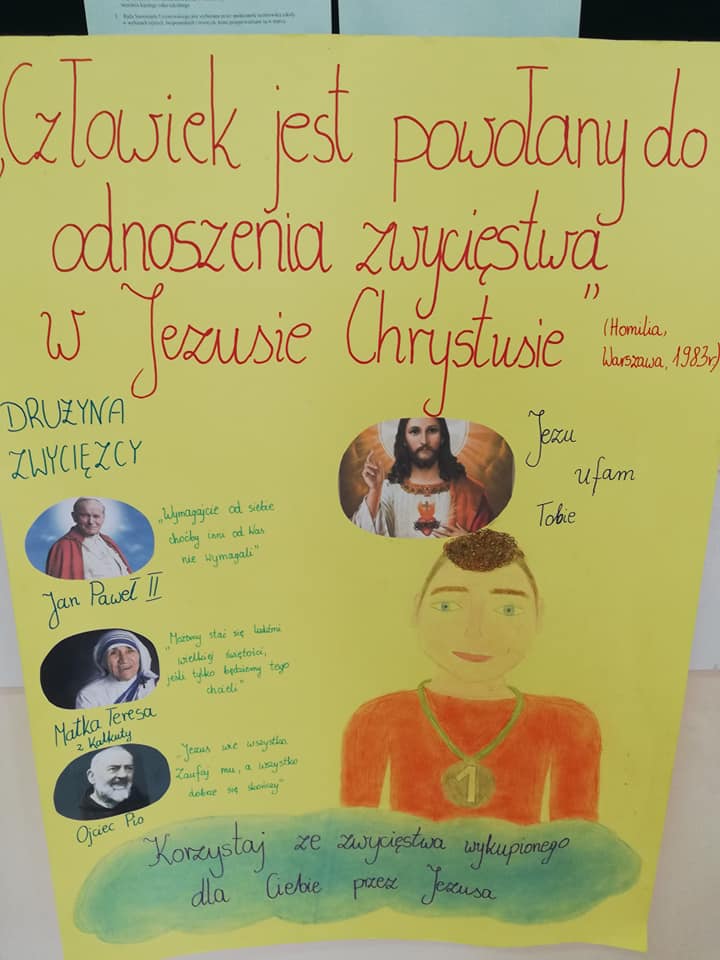 3. Rada Samorządu Uczniowskiego jest wybierana przez
„Człowiek jest powołany do
odnoszenia zwycięstwa
w Jezusie Chrystusie”
(Homilia,
Warszawa, 1983r)
DRUŻYNA
ZWYCIĘZCY
„Wymagajcie od siebie
choćby inni od Was
nie wymagali”
Jan Paweł II
„Możemy stać się ludźmi
wielkiej świętości,
jeśli tylko będziemy tego
chcieli”
Matka Teresa
z Kalkuty
„Jezus wie wszystko.
Zaufaj mu, a wszystko
dobrze się skończy”
Ojciec Pio
Jezu
ufam
Tobie
1
Korzystaj ze zwycięstwa wykupionego
dla Ciebie przez Jezusa